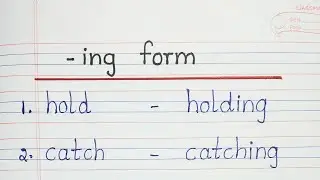 -ing form
1. hold - holding
2. catch - catching